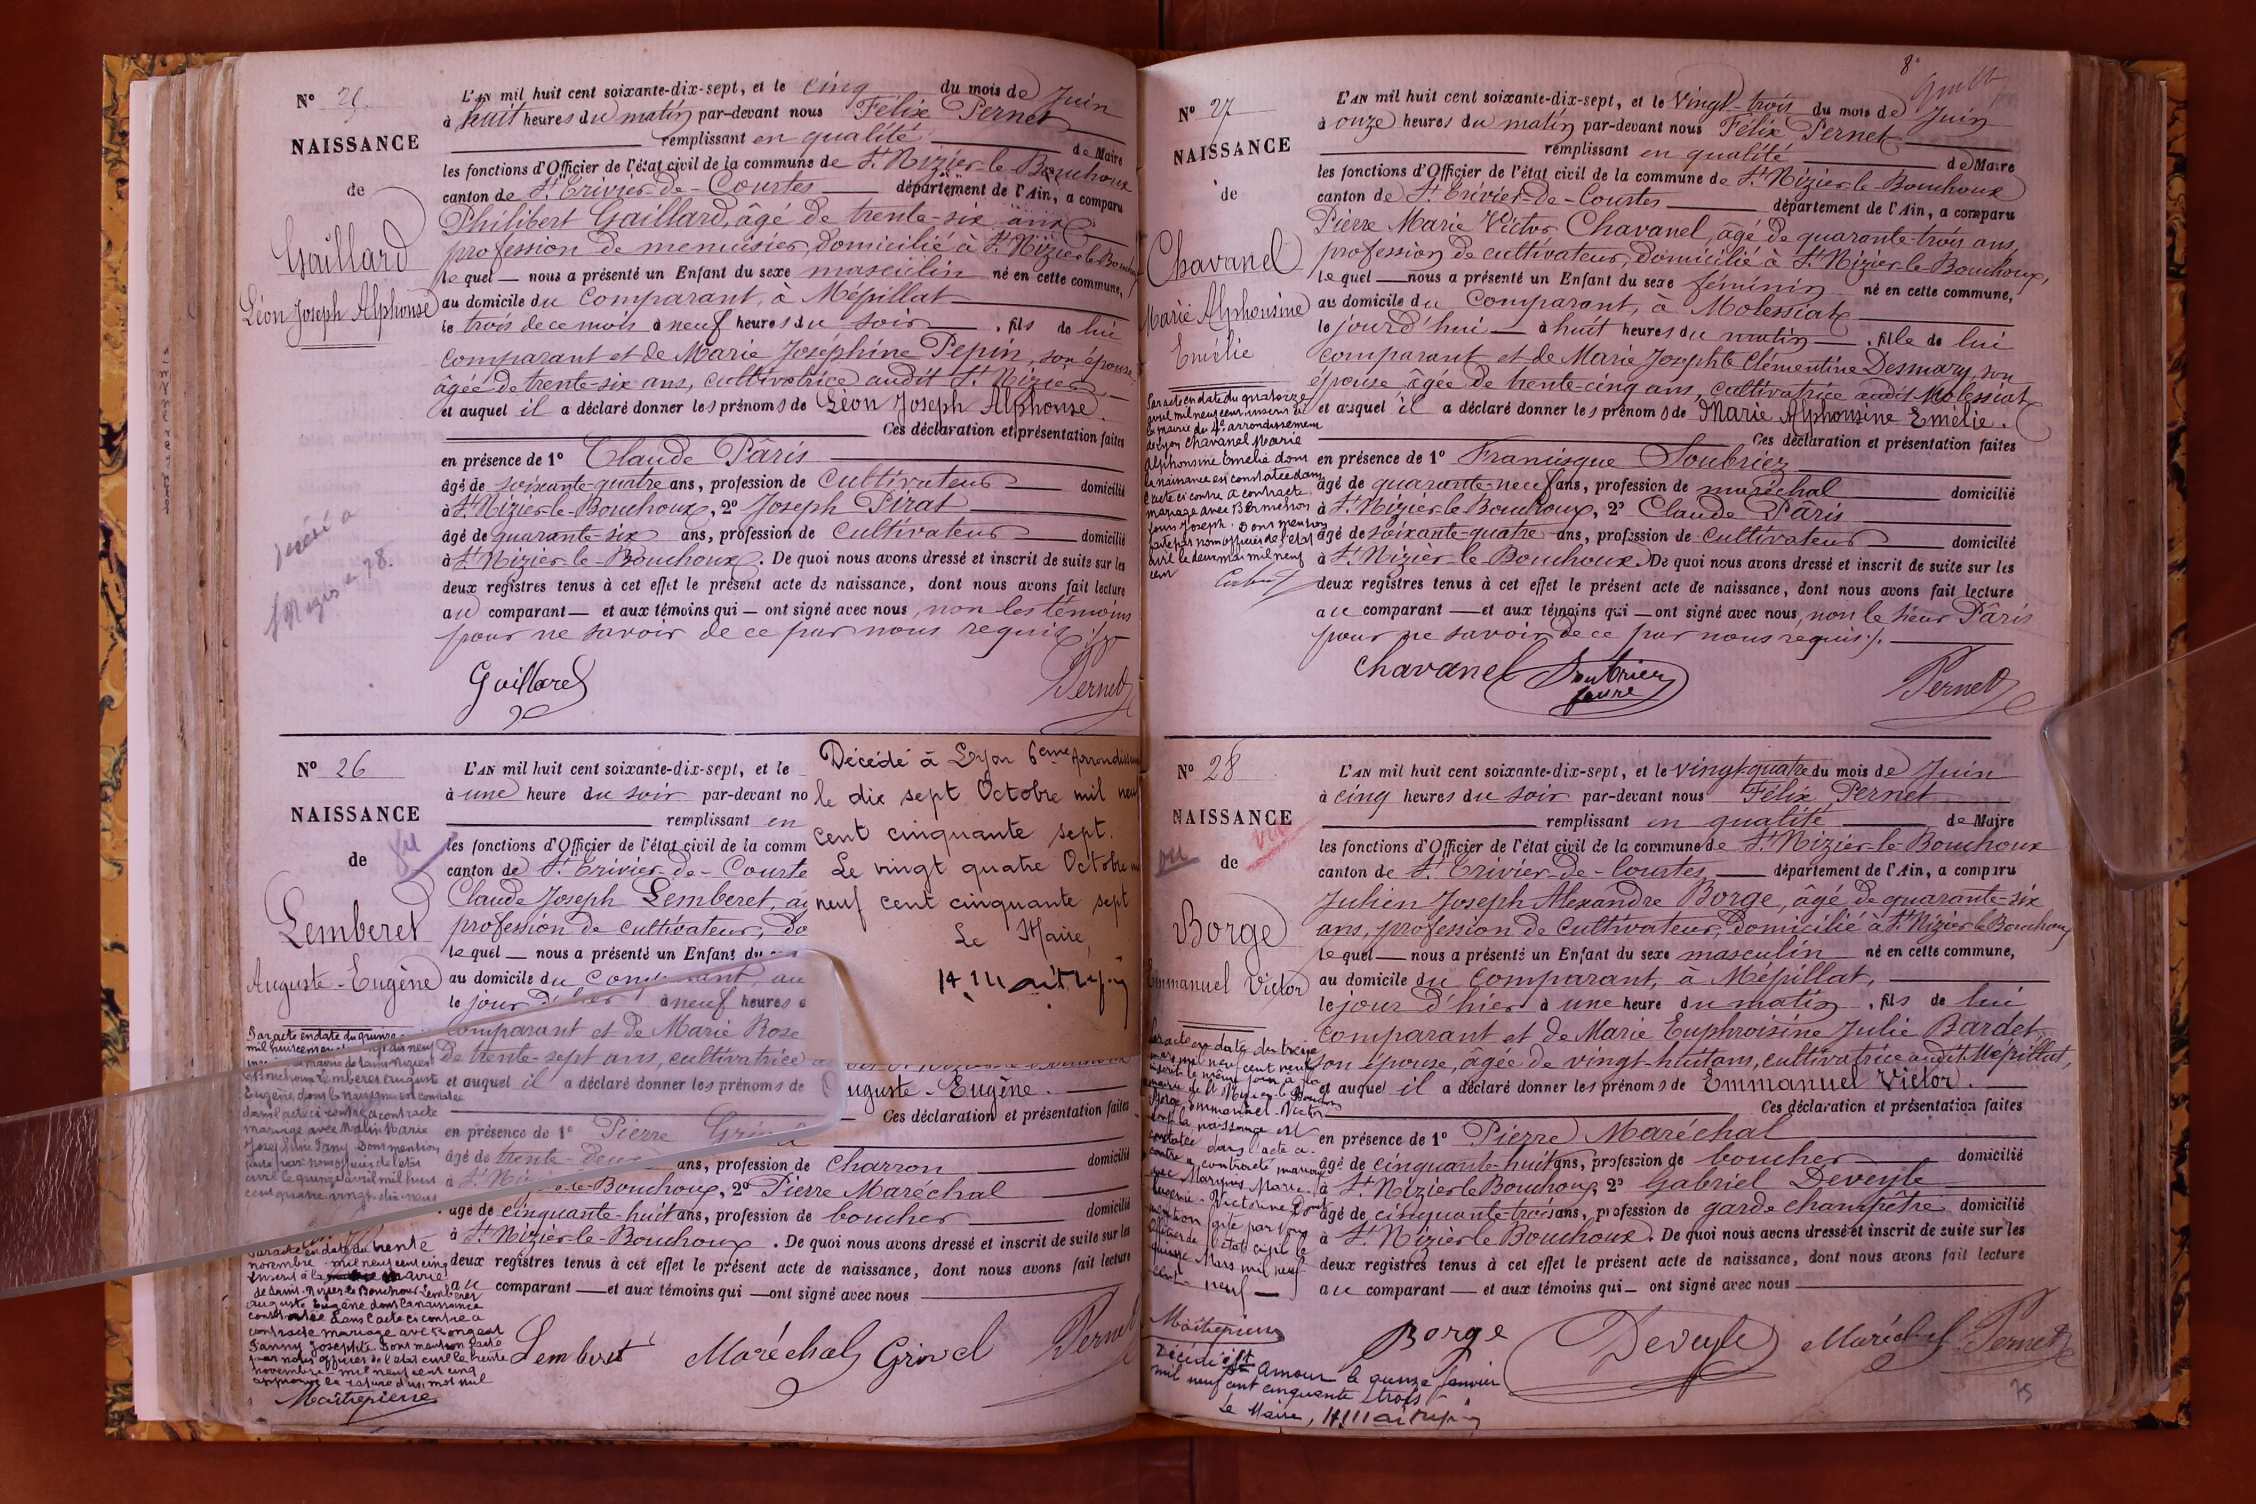 Nº 25
NAISSANCE
de
Gaillard
Léon Joseph Alphonse
décédé à
St Nizier
78.
L'AN mil huit cent soixante-dix-sept, et le cinq du mois de Juin
à huit heures du matin par-devant nous Félix Pernet
remplissant en qualité de Maire
les fonctions d'Officier de l'état civil de la commune de St Nizier-le-Bouchoux
canton de St Trivier-de-Courtes département de l'Ain, a comparu
Philibert Gaillard, âgé de trente-six ans
profession de menuisier, domicilié à St Nizier-le-Bouchoux
lequel — nous a présenté un Enfant du sexe masculin né en cette commune,
au domicile du comparant, à Mépillat
le trois de ce mois à neuf heures du soir, fils de lui
comparant et de Marie Joséphine Pepin, son épouse,
âgée de trente-six ans, cultivatrice audit St Nizier
et auquel il a déclaré donner les prénoms de Léon Joseph Alphonse.
Ces déclaration et présentation faites
en présence de 1º Claude Pâris
âgé de soixante-quatre ans, profession de cultivateur domicilié
à St Nizier-le-Bouchoux, 2º Joseph Pirat
âgé de quarante-six ans, profession de cultivateur domicilié
à St Nizier-le-Bouchoux. De quoi nous avons dressé et inscrit de suite sur les
deux registres tenus à cet effet le présent acte de naissance, dont nous avons fait lecture
au comparant — et aux témoins qui — ont signé avec nous, non les témoins
pour ne savoir de ce par nous requis ./.
Gaillard Pernet
Nº 26
NAISSANCE
de
vu
Lemberet
Auguste-Eugène
Par acte en date du quinze
mil huit cent dix neuf
mairie de Saint Nizier
le Bouchoux Lemberet Auguste
Eugène dont la naissance est constatée
dans l'acte ci contre a contracté
mariage avec Malin Marie
Joséphine Fany Dont mention
faite par nous officier de l'état
civil le quinze avril mil huit
cent quatre vingt dix neuf
Par acte en date du trente
novembre mil neuf cent cinq
inscrit à la mairie
de Saint-Nizier-le-Bouchoux Lemberet
Auguste Eugène dont la naissance
constatée dans l'acte ci contre a
contracté mariage avec Rongeat
Fanny Josephte Dont mention faite
par nous officier de l'état civil le trente
novembre mil neuf cent cinq
approuvé la rature d'un mot nul
Maitrepierre
L'AN mil huit cent soixante-dix-sept, et le
à une heure du soir par-devant no
remplissant en
les fonctions d'Officier de l'état civil de la comm
canton de St Trivier-de-Courte
Claude Joseph Lemberet, âg
profession de cultivateur, do
lequel — nous a présenté un Enfant du
au domicile du comparant, au
le jour d'hier à neuf heures
comparant et de Marie Rose
de trente-sept ans, cultivatrice
et auquel il a déclaré donner les prénoms de Auguste-Eugène.
Ces déclaration et présentation faites
en présence de 1º Pierre Grivel
âgé de trente-deux ans, profession de charron domicilié
à St Nizier-le-Bouchoux, 2º Pierre Maréchal
âgé de cinquante-huit ans, profession de boucher domicilié
à St Nizier-le-Bouchoux. De quoi nous avons dressé et inscrit de suite sur les
deux registres tenus à cet effet le présent acte de naissance, dont nous avons fait lecture
au comparant — et aux témoins qui — ont signé avec nous
Lemberet Maréchal Grivel Pernet
Décédé à Lyon 6ème Arrondissem
le dix sept Octobre mil neuf
cent cinquante sept.
Le vingt quatre Octobre m
neuf cent cinquante sept
Le Maire,
8e
Nº 27
NAISSANCE
de
Chavanel
Marie Alphonsine
Emélie
Par acte en date du quatorze
avril mil neuf cent inscrit à
la mairie du 4e arrondissement
de Lyon Chavanel Marie
Alphonsine Emélie dont
la naissance est constatée dans
l'acte ci contre a contracté
mariage avec
Joseph. Dont mention
faite par nous officier de l'état
civil le deux mai mil neuf
cent
L'AN mil huit cent soixante-dix-sept, et le vingt-trois du mois de Juin
à onze heures du matin par-devant nous Félix Pernet
remplissant en qualité de Maire
les fonctions d'Officier de l'état civil de la commune de St Nizier-le-Bouchoux
canton de St Trivier-de-Courtes département de l'Ain, a comparu
Pierre Marie Victor Chavanel, âgé de quarante-trois ans,
profession de cultivateur, domicilié à St Nizier-le-Bouchoux,
lequel — nous a présenté un Enfant du sexe féminin né en cette commune,
au domicile du comparant, à Molessiat
le jourd'hui — à huit heures du matin, fille de lui
comparant et de Marie Josephte Clémentine Desmary, son
épouse, âgée de trente-cinq ans, cultivatrice audit Molessiat
et auquel il a déclaré donner les prénoms de Marie Alphonsine Emélie.
Ces déclaration et présentation faites
en présence de 1º Francisque Soubriez
âgé de quarante-neuf ans, profession de maréchal domicilié
à St Nizier-le-Bouchoux, 2º Claude Pâris
âgé de soixante-quatre ans, profession de cultivateur domicilié
à St Nizier-le-Bouchoux. De quoi nous avons dressé et inscrit de suite sur les
deux registres tenus à cet effet le présent acte de naissance, dont nous avons fait lecture
au comparant — et aux témoins qui — ont signé avec nous, non le sieur Pâris
pour ne savoir de ce par nous requis ./.
Chavanel Soubriez Pernet
Nº 28
NAISSANCE
vu
vu
de
Borge
Emmanuel Victor
Par acte en date du treize
mars mil neuf cent neuf
inscrit le même jour à la
mairie de St Nizier-le-Bouchoux
Borge Emmanuel Victor
dont la naissance est
constatée dans l'acte ci
contre a contracté mariage
avec Marquis Marie
Eugénie Victorine Dont
mention faite par nous
officier de l'état civil le
quinze Mars mil neuf
cent neuf —
Maitrepierre
Décédé à St Amour le quinze Janvier
mil neuf cent cinquante trois
Le Maire,
L'AN mil huit cent soixante-dix-sept, et le vingt-quatre du mois de Juin
à cinq heures du soir par-devant nous Félix Pernet
remplissant en qualité de Maire
les fonctions d'Officier de l'état civil de la commune de St Nizier-le-Bouchoux
canton de St Trivier-de-Courtes département de l'Ain, a comparu
Julien Joseph Alexandre Borge, âgé de quarante-six
ans, profession de cultivateur, domicilié à St Nizier-le-Bouchoux
lequel — nous a présenté un Enfant du sexe masculin né en cette commune,
au domicile du comparant, à Mépillat,
le jour d'hier à une heure du matin, fils de lui
comparant et de Marie Euphroisine Julie Bardet,
son épouse, âgée de vingt-huit ans, cultivatrice audit Mépillat,
et auquel il a déclaré donner les prénoms de Emmanuel Victor.
Ces déclaration et présentation faites
en présence de 1º Pierre Maréchal
âgé de cinquante-huit ans, profession de boucher domicilié
à St Nizier le Bouchoux, 2º Gabriel Deveyle
âgé de cinquante-trois ans, profession de garde champêtre domicilié
à St Nizier le Bouchoux. De quoi nous avons dressé et inscrit de suite sur les
deux registres tenus à cet effet le présent acte de naissance, dont nous avons fait lecture
au comparant — et aux témoins qui — ont signé avec nous
Borge Deveyle Maréchal Pernet
75